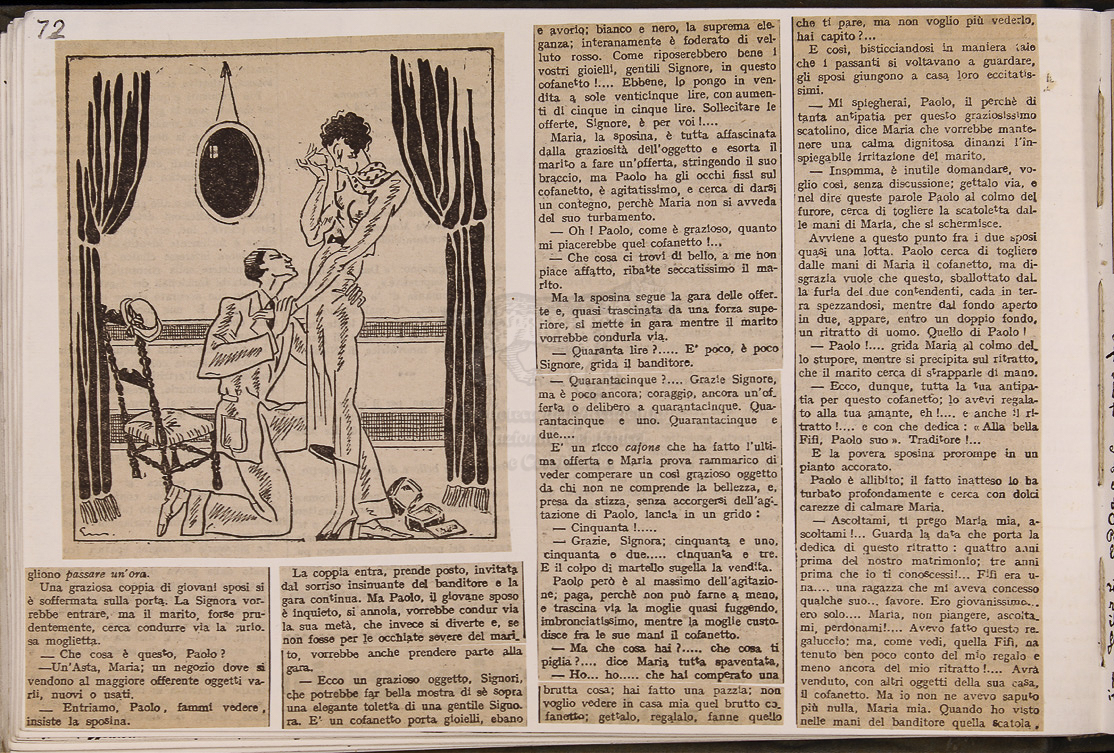 72
gliono passare un'ora.
Una graziosa coppia di giovani sposi si
è soffermata sulla porta. La Signora vor-
rebbe entrare, ma il marito, forse pru-
dentemente, cerca condurre via la curio-
sa moglietta.
— Che cosa è questo, Paolo ?
—Un'Asta, Maria; un negozio dove si
vendono al maggiore offerente oggetti va-
rii, nuovi o usati.
— Entriamo, Paolo, fammi vedere,
insiste la sposina.
La coppia entra, prende posto, invitata
dal sorriso insinuante del banditore e la
gara continua. Ma Paolo, il giovane sposo
è inquieto, si annoia, vorrebbe condur via
la sua metà, che invece si diverte e, se
non fosse per le occhiate severe del mari
to, vorrebbe anche prendere parte alla
gara.
— Ecco un grazioso oggetto, Signori,
che potrebbe far bella mostra di sè sopra
una elegante toletta di una gentile Signo-
ra. E' un cofanetto porta gioielli, ebano
e avorio; bianco e nero, la suprema ele-
ganza; interanamente è foderato di vel-
luto rosso. Come riposerebbero bene i
vostri gioielli, gentili Signore, in questo
cofanetto !.... Ebbene, lo pongo in ven-
dita a sole venticinque lire, con aumen-
ti di cinque in cinque lire. Sollecitare le
offerte, Signore, è per voi !....
Maria, la sposina, è tutta affascinata
dalla graziosità dell'oggetto e esorta il
marito a fare un'offerta, stringendo il suo
braccio, ma Paolo ha gli occhi fissi sul
cofanetto, è agitatissimo, e cerca di darsi
un contegno, perchè Maria non si avveda
del suo turbamento.
— Oh ! Paolo, come è grazioso, quanto
mi piacerebbe quel cofanetto !...
— Che cosa ci trovi di bello, a me non
piace affatto, ribatte seccatissimo il ma-
rito.
Ma la sposina segue la gara delle offer-
te e, quasi trascinata da una forza supe-
riore, si mette in gara mentre il marito
vorrebbe condurla via.
— Quaranta lire ?..... E' poco, è poco
Signore, grida il banditore.
— Quarantacinque ?.... Grazie Signore,
ma è poco ancora; coraggio, ancora un'of-
ferta o delibero a quarantacinque. Qua-
rantacinque e uno. Quarantacinque e
due....
E' un ricco cafone che ha fatto l'ulti-
ma offerta e Maria prova rammarico di
veder comperare un così grazioso oggetto
da chi non ne comprende la bellezza, e,
presa da stizza, senza accorgersi dell'agi-
tazione di Paolo, lancia in un grido :
— Cinquanta !.....
— Grazie, Signora; cinquanta e uno,
cinquanta e due..... cinquanta e tre.
E il colpo di martello sugella la vendita.
Paolo però è al massimo dell'agitazio-
ne; paga, perchè non può farne a meno,
e trascina via la moglie quasi fuggendo,
imbronciatissimo, mentre la moglie custo-
disce fra le sue mani il cofanetto.
— Ma che cosa hai ?..... che cosa ti
piglia ?.... dice Maria tutta spaventata,
— Ho... ho..... che hai comperato una
brutta cosa; hai fatto una pazzia; non
voglio vedere in casa mia quel brutto co-
fanetto; gettalo, regalalo, fanne quello
che ti pare, ma non voglio più vederlo,
hai capito ?...
E così, bisticciandosi in maniera tale
che i passanti si voltavano a guardare,
gli sposi giungono a casa loro eccitatis-
simi.
— Mi spiegherai, Paolo, il perchè di
tanta antipatia per questo graziosissimo
scatolino, dice Maria che vorrebbe mante-
nere una calma dignitosa dinanzi l'in-
spiegabile irritazione del marito.
— Insomma, è inutile domandare, vo-
glio così, senza discussione; gettalo via, e
nel dire queste parole Paolo al colmo del
furore, cerca di togliere la scatoletta dal-
le mani di Maria, che si schermisce.
Avviene a questo punto fra i due sposi
quasi una lotta. Paolo cerca di togliere
dalle mani di Maria il cofanetto, ma di-
sgrazia vuole che questo, sballottato dal-
la furia dei due contendenti, cada in ter-
ra spezzandosi, mentre dal fondo aperto
in due, appare, entro un doppio fondo,
un ritratto di uomo. Quello di Paolo !
— Paolo !.... grida Maria al colmo del-
lo stupore, mentre si precipita sul ritratto,
che il marito cerca di strapparle di mano.
— Ecco, dunque, tutta la tua antipa-
tia per questo cofanetto; lo avevi regala-
to alla tua amante, eh !.... e anche il ri-
tratto !.... e con che dedica : « Alla bella
Fifi, Paolo suo ». Traditore !...
E la povera sposina prorompe in un
pianto accorato.
Paolo è allibito; il fatto inatteso lo ha
turbato profondamente e cerca con dolci
carezze di calmare Maria.
— Ascoltami, ti prego Maria mia, a-
scoltami !... Guarda la data che porta la
dedica di questo ritratto : quattro anni
prima del nostro matrimonio; tre anni
prima che io ti conoscessi!... Fifi era u-
na.... una ragazza che mi aveva concesso
qualche suo... favore. Ero giovanissimo...
ero solo.... Maria, non piangere, ascolta-
mi, perdonami!.... Avevo fatto questo re-
galuccio; ma, come vedi, quella Fifi, ha
tenuto ben poco conto del mio regalo e
meno ancora del mio ritratto !.... Avrà
venduto, con altri oggetti della sua casa,
il cofanetto. Ma io non ne avevo saputo
più nulla, Maria mia. Quando ho visto
nelle mani del banditore quella scatola,